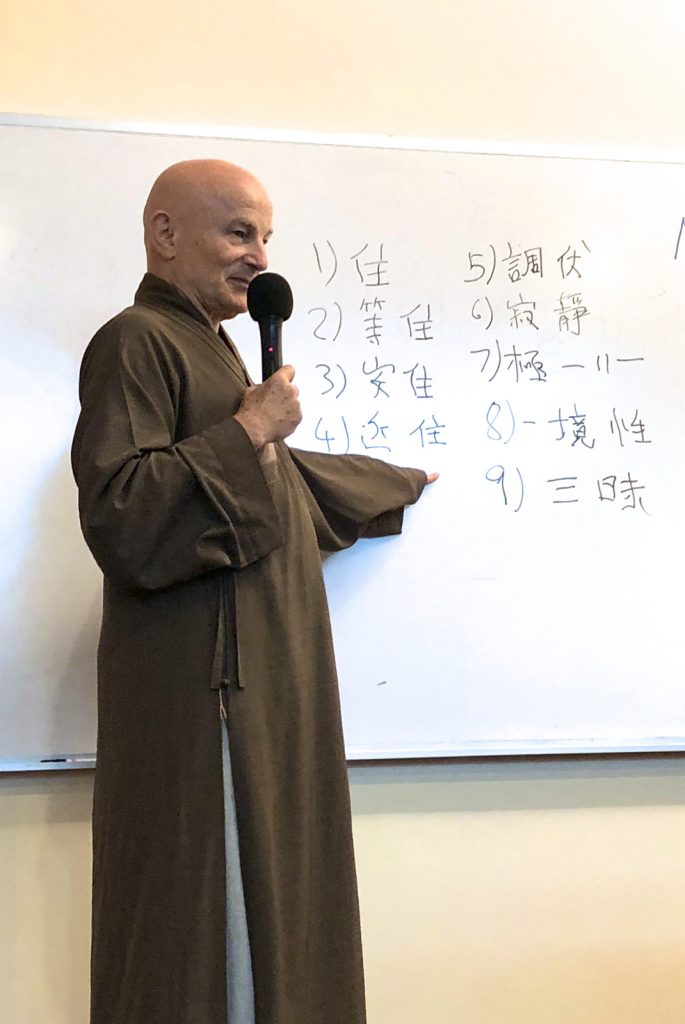 1) 住
2) 等住
3) 安住
4) 近住
5) 調伏
6) 寂靜
7) 極 —〃—
8) 一境性
9) 三昧